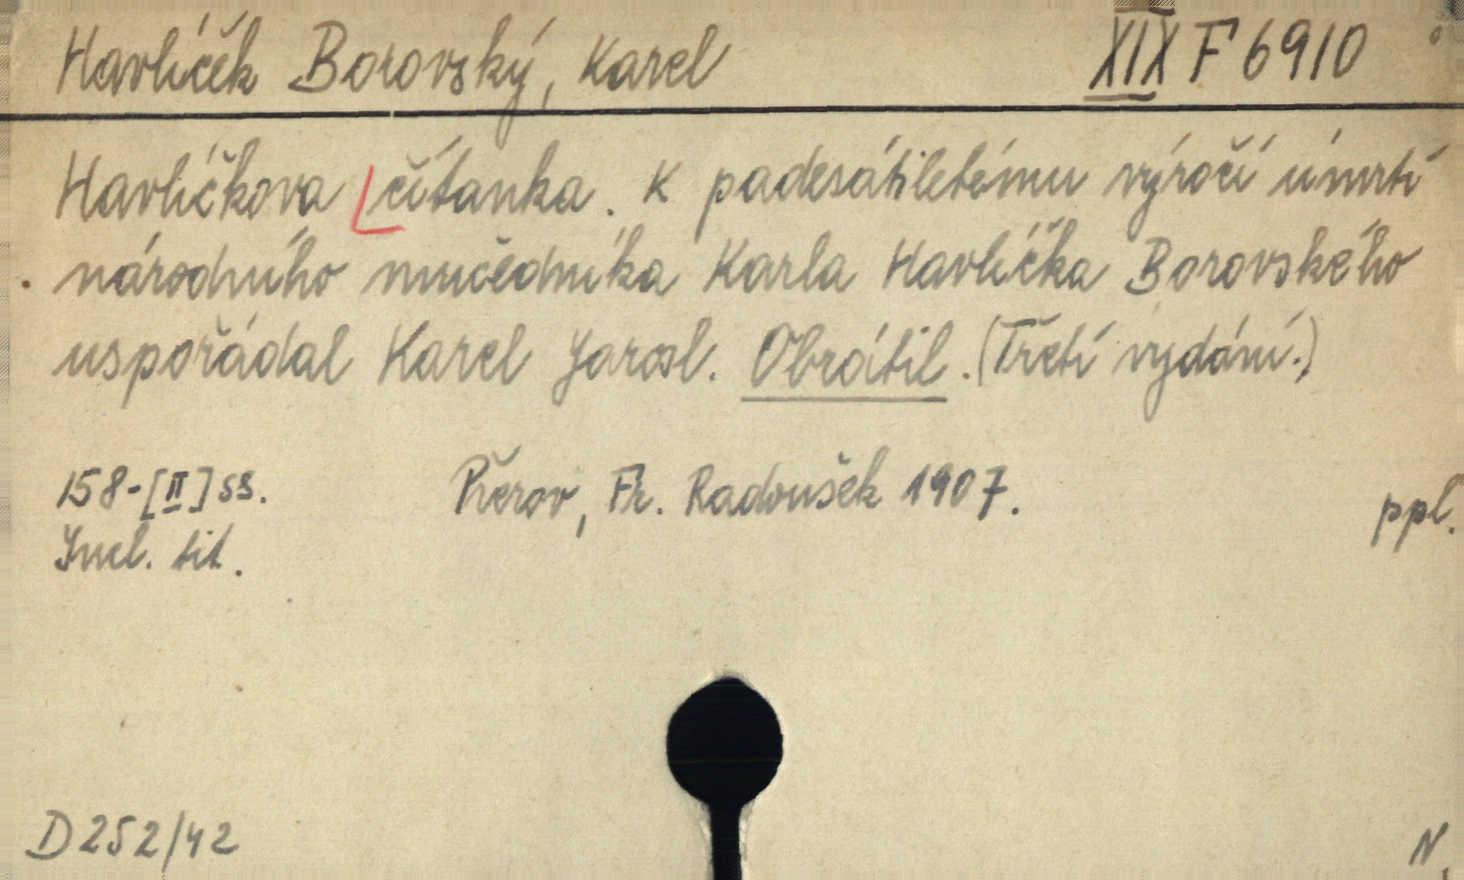 Havlíček Borovský, Karel XIX F 6910
Havlíčkova čítanka. K padesátiletému výročí úmrtí
národního mučedníka Karla Havlíčka Borovského
uspořádal Karel Jarosl. Obrátil. (Třetí vydání.)
158-[II] ss. Přerov, Fr. Radoušek 1907. ppl.
Incl. tit.
D 252/42 N.